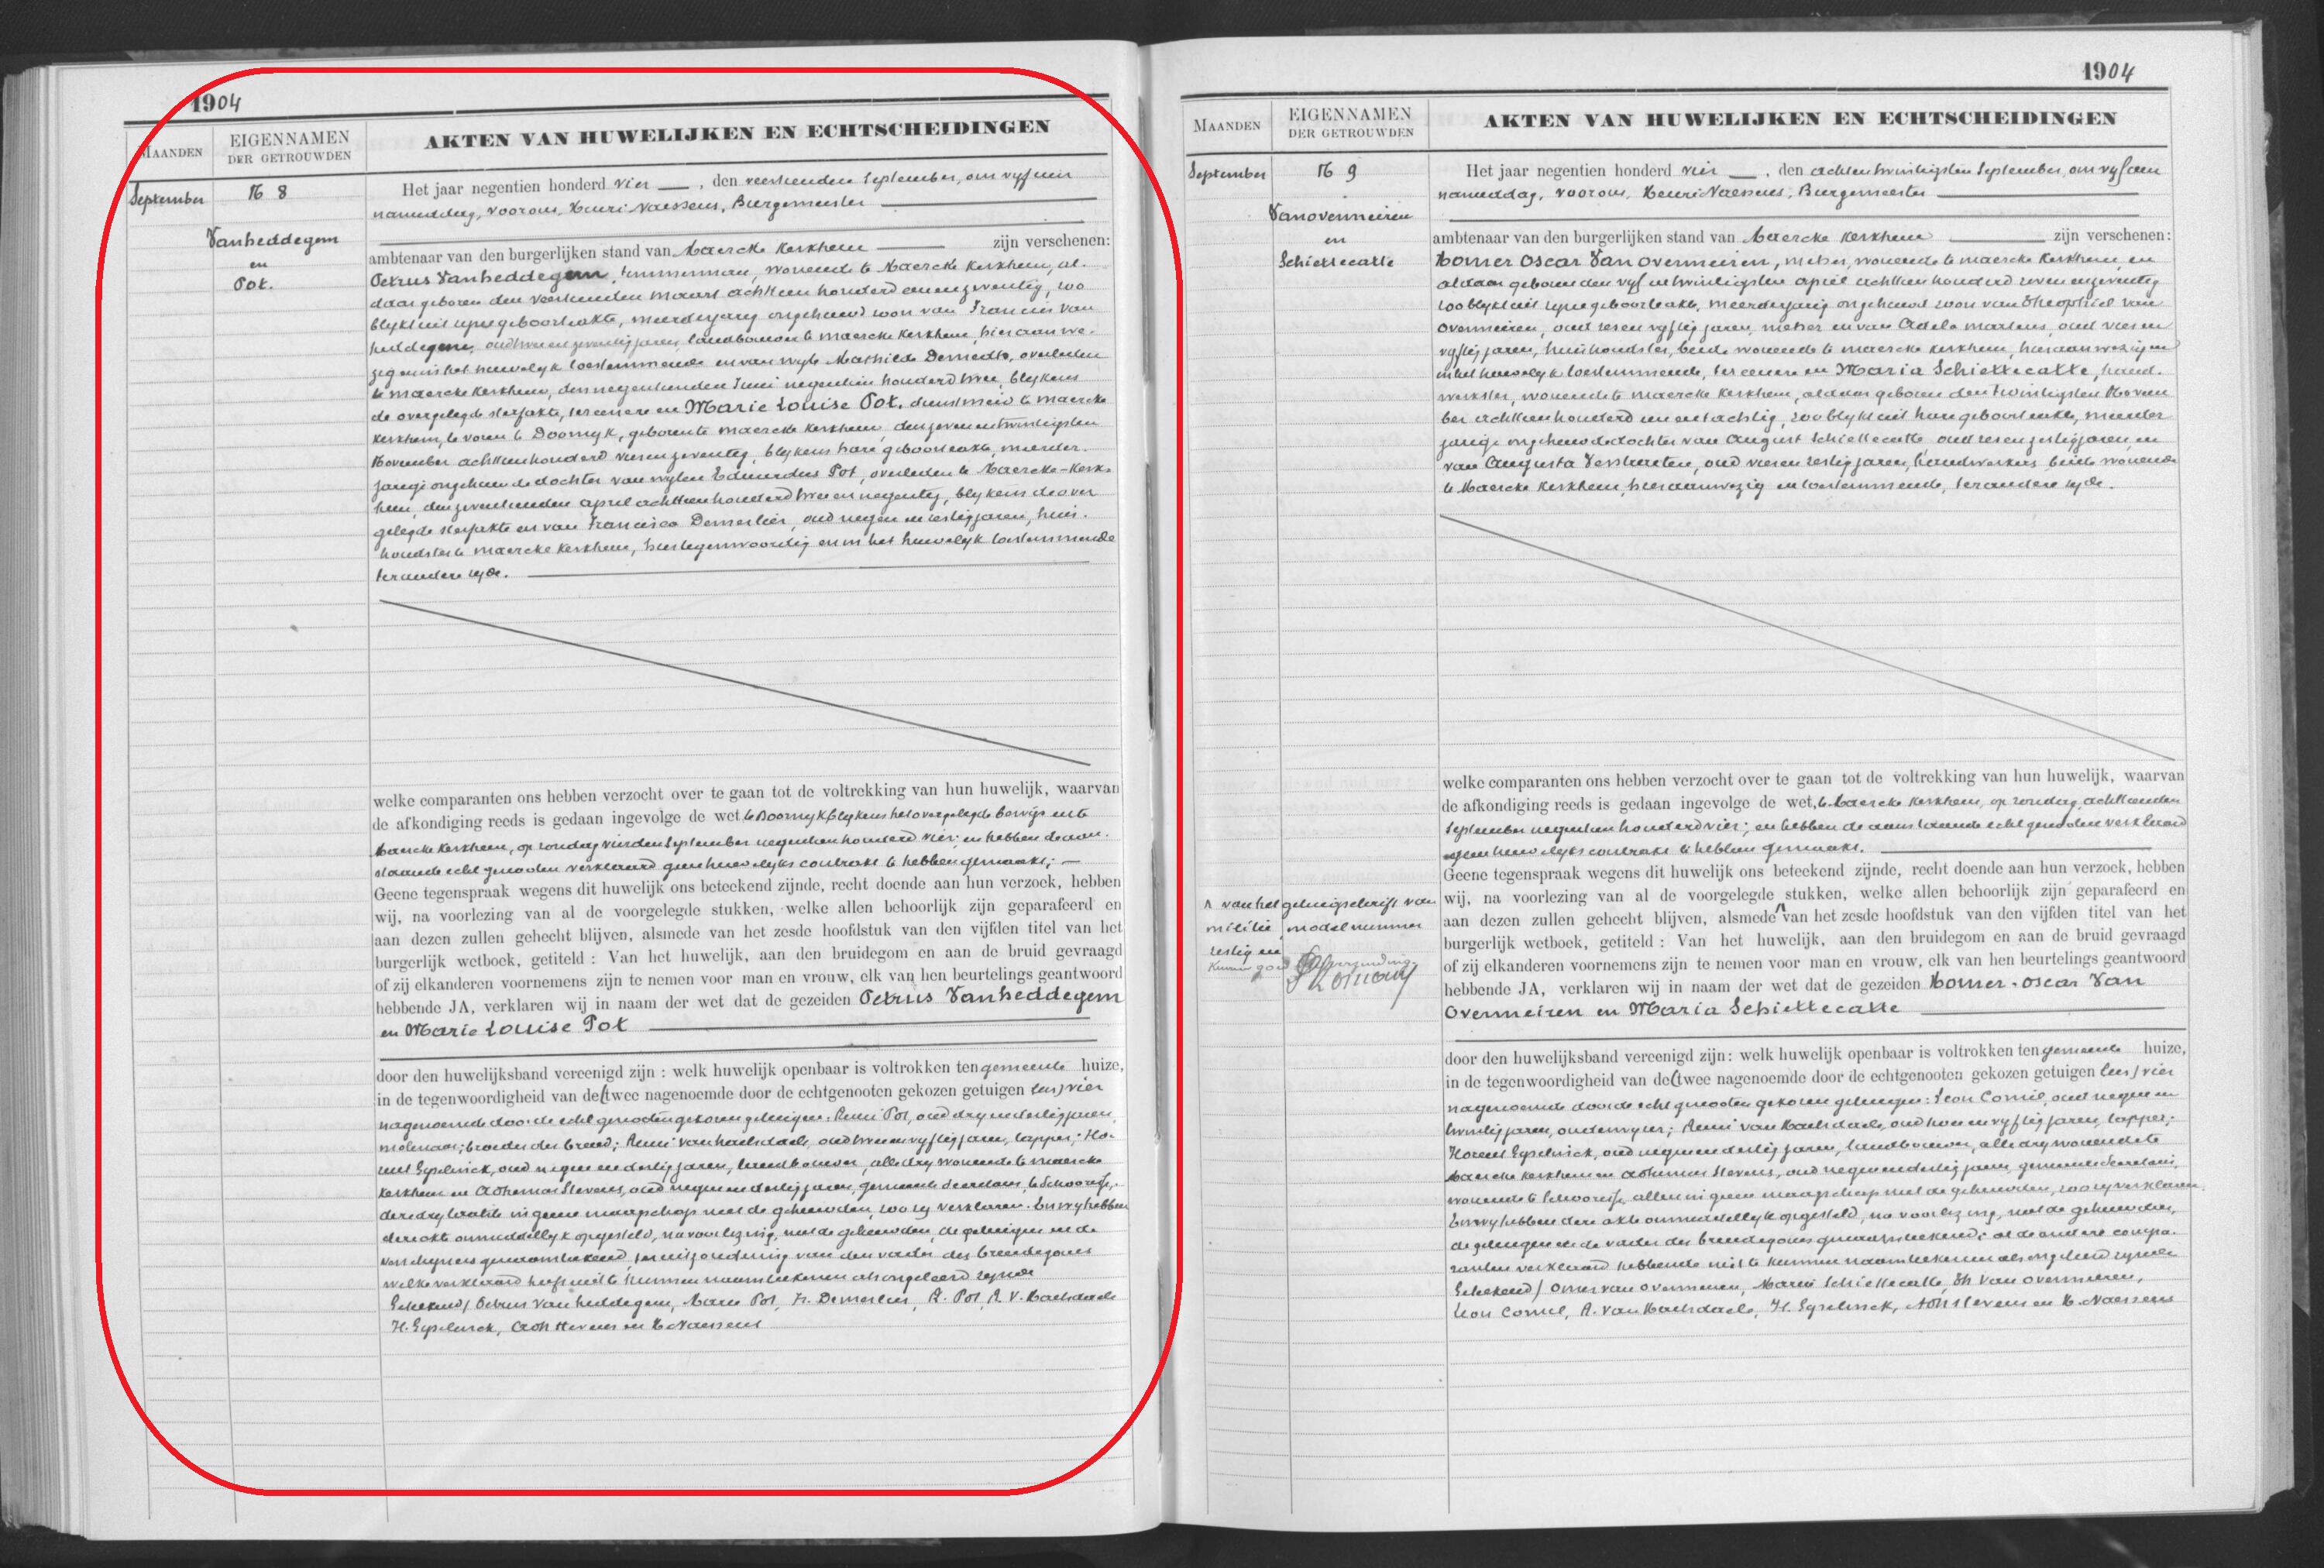 1904
MAANDEN
EIGENNAMEN
DER GETROUWDEN
AKTEN VAN HUWELIJKEN EN ECHTSCHEIDINGEN
September
16 8
Vanheddegem
en
Pot.
Het jaar negentien honderd vier, den veertienden September, om vyf uren
namiddag, voor ons, Henri Naessens, Burgemeester
ambtenaar van den burgerlijken stand van Maercke Kerkhem zijn verschenen:
Petrus Vanheddegem, timmerman, wonende te Maercke Kerkhem, al-
daar geboren den veertienden maart achttien honderd een en zeventig, zoo
blykt uit zyne geboorteakte, meerderjarig ongehuwd zoon van Francies Van
heddegem, oud twee en zeventig jaren, landbouwer te maercke Kerkhem, hier aanwe-
zig en in het huwelyk toestemmende en van wyle Mathilde Demedts, overleden
te maercke Kerkhem, den negentienden Juni negentien honderd twee, blykens
de overgelegde sterfakte, ter eenere en Marie Louise Pot, dienstmeid te maercke
Kerkhem, te voren te Doornyk, geboren te maercke Kerkhem, den zeven en twintigsten
November achttienhonderd vier en zeventig, blykens hare geboorteakte, meerder-
jarige ongehuwde dochter van wylen Eduardus Pot, overleden te Maercke-Kerk-
hem, den zeventienden april achttienhonderd twee en negentig, blykens de over
gelegde sterfakte en van Francisca Demerlier, oud negen en zestig jaren, huis-
houdster te maercke Kerkhem, hier tegenwoordig en in het huwelyk toestemmende
ter andere zyde.
welke comparanten ons hebben verzocht over te gaan tot de voltrekking van hun huwelijk, waarvan
de afkondiging reeds is gedaan ingevolge de wet, te Doornyk blykens het overgelegde bewijs en te
Maercke Kerkhem, op zondag vierden September negentien honderd vier; en hebben de aan-
staande echtgenooten verklaard geen huwelyks contrakt te hebben gemaakt;
Geene tegenspraak wegens dit huwelijk ons beteekend zijnde, recht doende aan hun verzoek, hebben
wij, na voorlezing van al de voorgelegde stukken, welke allen behoorlijk zijn geparafeerd en
aan dezen zullen gehecht blijven, alsmede van het zesde hoofdstuk van den vijfden titel van het
burgerlijk wetboek, getiteld : Van het huwelijk, aan den bruidegom en aan de bruid gevraagd
of zij elkanderen voornemens zijn te nemen voor man en vrouw, elk van hen beurtelings geantwoord
hebbende JA, verklaren wij in naam der wet dat de gezeiden Petrus Vanheddegem
en Marie Louise Pot
door den huwelijksband vereenigd zijn : welk huwelijk openbaar is voltrokken ten gemeente huize,
in de tegenwoordigheid van de (twee nagenoemde door de echtgenooten gekozen getuigen lees) vier
nagenoemde door de echtgenooten gekozen getuigen: Remi Pot, oud dry en dertig jaren
molenaar, broeder der bruid; Remi Van Haelsdaele, oud twee en vyftig jaren, tapper; Ho-
nord Eyselinck, oud negen en dertig jaren, landbouwer, alle dry wonende te maercke
Kerkhem en Adhemar Stevens, oud negen en dertig jaren, gemeente Secretaris, te Schoorisse,
deze dry laatste in geene maagschap met de gehuwden, zoo zy verklaren. En wy hebben
deze akte onmiddellyk opgesteld, na voorlezing, met de gehuwden, de getuigen en de
verschyners genaamteekend, ter uitzondering van den vader des bruidegoms
welke verklaard heeft niet te kunnen naamteekenen als ongeleerd zynde
Geteekend/ Petrus Vanheddegem, Marie Pot, Fr. Demerlier, R. Pot, R. V. Haelsdaele
H. Eyselinck, Adh Stevens en H. Naessens
1904
MAANDEN
EIGENNAMEN
DER GETROUWDEN
AKTEN VAN HUWELIJKEN EN ECHTSCHEIDINGEN
September
16 9
Vanovermeiren
en
Schiettecatte
Het jaar negentien honderd vier, den achtentwintigsten September, om vyf uren
namiddag, voor ons, Henri Naessens, Burgemeester
ambtenaar van den burgerlijken stand van Maercke Kerkhem zijn verschenen:
Homer Oscar Van Overmeiren, metser, wonende te maercke Kerkhem, en
aldaar geboren den vyf en twintigsten april achttien honderd zeven en zeventig
zoo blykt uit zyne geboorteakte, meerderjarig ongehuwd zoon van Theophiel Van
Overmeiren, oud zes en vyftig jaren, metser en van Adele Martens, oud vier en
vyftig jaren, huishoudster, beide wonende te maercke Kerkhem, hier aanwezig en
in het huwelyk toestemmende, ter eenere en Maria Schiettecatte, hand-
werkster, wonende te maercke Kerkhem, aldaar geboren den twintigsten Novem
ber achttienhonderd een en tachtig, zoo blykt uit hare geboorteakte, meerder
jarige ongehuwde dochter van August Schiettecatte oud zes en zestig jaren, en
van Augusta Verstraeten, oud vier en zestig jaren, handwerkers, beide wonende
te Maercke Kerkhem, hier aanwezig en toestemmende, ter andere zyde.
welke comparanten ons hebben verzocht over te gaan tot de voltrekking van hun huwelijk, waarvan
de afkondiging reeds is gedaan ingevolge de wet, te Maercke Kerkhem, op zondag achttienden
September negentien honderd vier; en hebben de aanstaande echtgenooten verklaard
geen huwelyks contrakt te hebben gemaakt.
Geene tegenspraak wegens dit huwelijk ons beteekend zijnde, recht doende aan hun verzoek, hebben
wij, na voorlezing van al de voorgelegde stukken, welke allen behoorlijk zijn geparafeerd en
aan dezen zullen gehecht blijven, alsmede van het zesde hoofdstuk van den vijfden titel van het
burgerlijk wetboek, getiteld : Van het huwelijk, aan den bruidegom en aan de bruid gevraagd
of zij elkanderen voornemens zijn te nemen voor man en vrouw, elk van hen beurtelings geantwoord
hebbende JA, verklaren wij in naam der wet dat de gezeiden Homer-Oscar Van
Overmeiren en Maria Schiettecatte
van het getuigschrift van
militie, model nummer
zestig en
door den huwelijksband vereenigd zijn: welk huwelijk openbaar is voltrokken ten gemeente huize,
in de tegenwoordigheid van de (twee nagenoemde door de echtgenooten gekozen getuigen lees) vier
nagenoemde door de echtgenooten gekozen getuigen: Leon Cornil, oud negen en
twintig jaren, onderwyzer; Remi Van Haelsdaele, oud twee en vyftig jaren, tapper;
Honord Eyselinck, oud negen en dertig jaren, landbouwer, alle dry wonende te
Maercke Kerkhem en Adhemar Stevens, oud negen en dertig jaren, gemeente Secretaris,
wonende te Schoorisse, allen in geene maagschap met de gehuwden, zoo zy verklaren.
En wy hebben deze akte onmiddellyk opgesteld, na voorlezing, met de gehuwden,
de getuigen en de vader des bruidegoms genaamteekend; de andere compa-
ranten verklaard hebbende niet te kunnen naamteekenen als ongeleerd zynde
Geteekend/ Omer van Overmeiren, Maria Schiettecatte, Th Van Overmeiren,
Leon Cornil, R. Van Haelsdaele, H. Eyselinck, Adh Stevens en H. Naessens